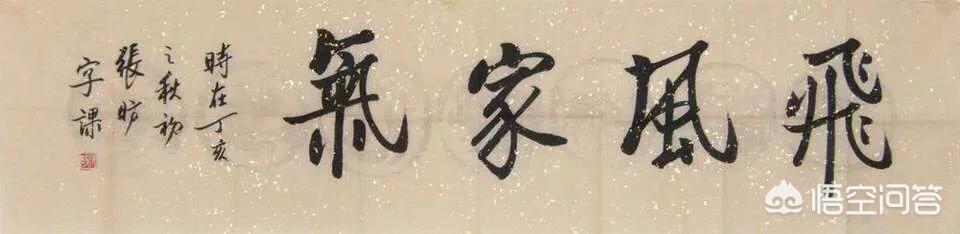 飛風家氣
時在丁亥
之秋初
張昉
字課
悟空问答